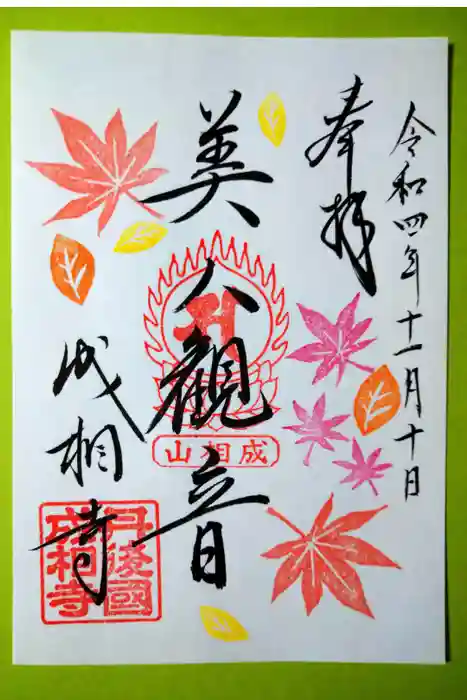 令和四年十一月十日
奉拝
美人観音
成相山
成相寺
丹後國
成相寺